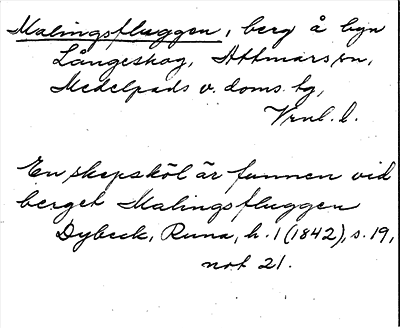 Malingsfluggen, berg å byn
Långskog, Attmars sn,
Medelpads v. doms. tg,
Vnl. l.
En skepsköl är funnen vid
berget Malingsfluggen
Dybeck, Runa, h. 1 (1842), s. 19,
not 21.